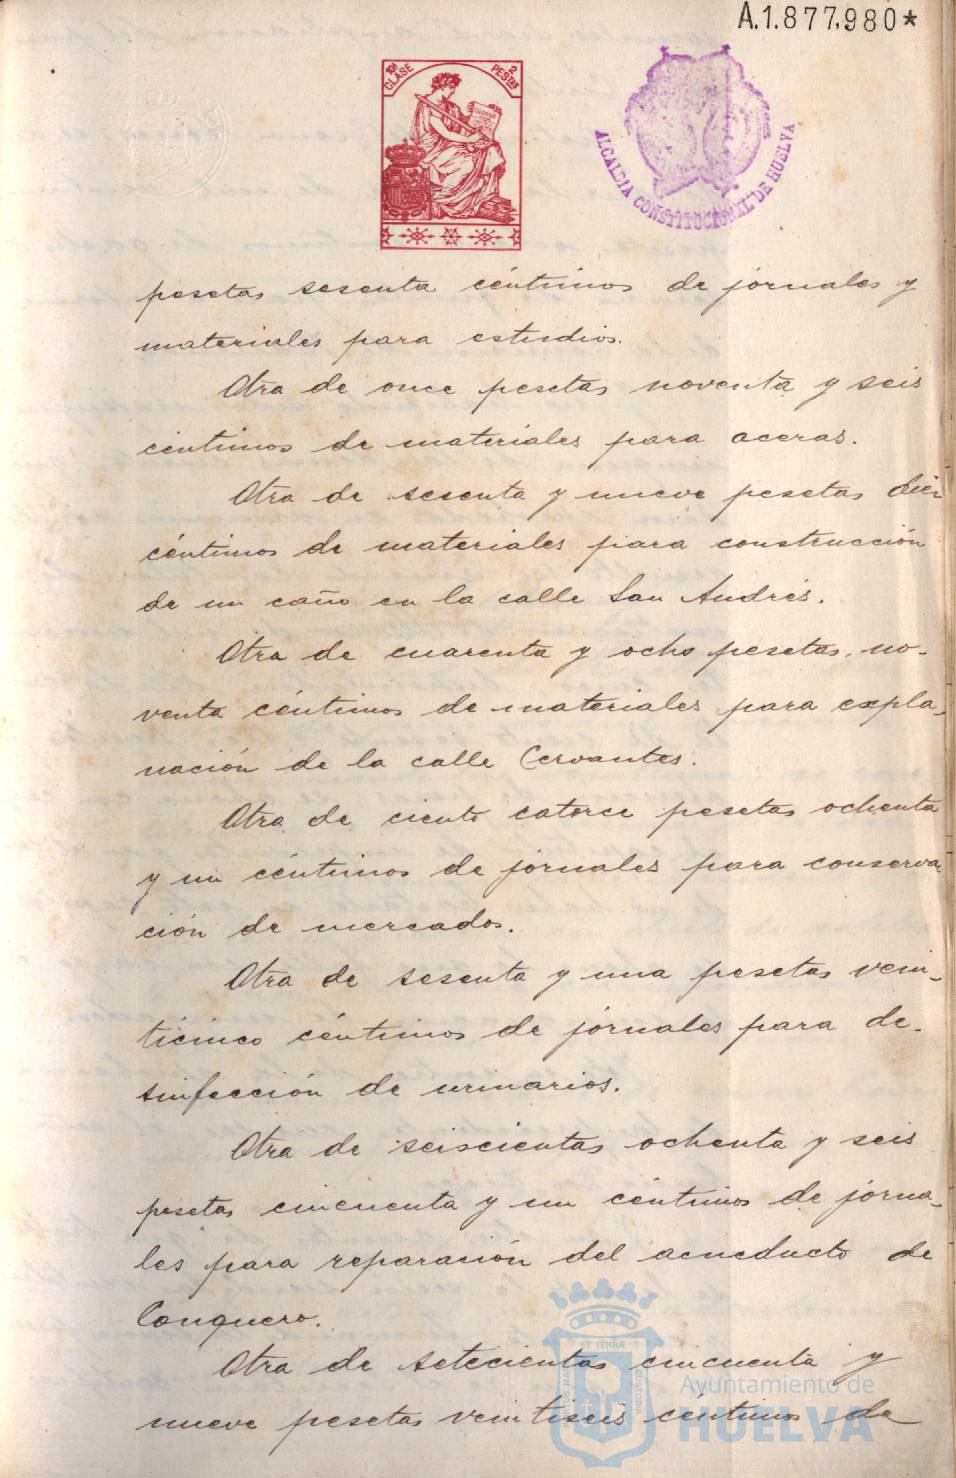 A.1.877,980*
10ª CLASE
2 PESTAS
ALCALDIA CONSTITUCIONAL DE HUELVA
pesetas sesenta céntimos de jornales y
materiales para estudios.
Otra de once pesetas noventa y seis
céntimos de materiales para aceras.
Otra de sesenta y nueve pesetas diez
céntimos de materiales para construcción
de un caño en la calle San Andrés.
Otra de cuarenta y ocho pesetas, no-
venta céntimos de materiales para expla-
nación de la calle Cervantes.
Otra de ciento catorce pesetas ochenta
y un céntimos de jornales para conserva
ción de mercados.
Otra de sesenta y una pesetas vein-
ticinco céntimos de jornales para de-
sinfección de urinarios.
Otra de seiscientas ochenta y seis
pesetas cincuenta y un céntimos de jorna-
les para reparación del acueducto de
Conquero.
Otra de setecientas cincuenta y
nueve pesetas veintiseis céntimos de
Ayuntamiento de
HUELVA